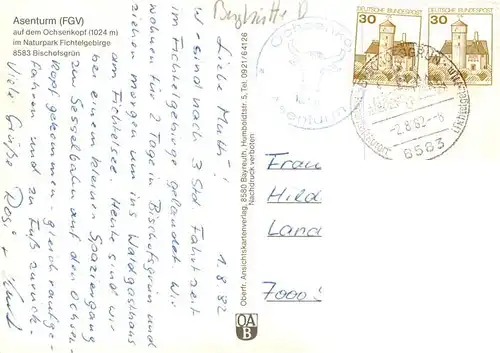 Asenturm (FGV)
auf dem Ochsenkopf (1024 m)
im Naturpark Fichtelgebirge
8583 Bischofsgrün
Berghütte
Ochsenkopf
Asenturm
30
DEUTSCHE BUNDESPOST
30
DEUTSCHE BUNDESPOST
-2.8.82-8
8583
1.8.82
Liebe Mutti!
Wir sind nach 3 Std Fahrtzeit
im Fichtelgebirge gelandet. Wir
wohnen für 2 Tage in Bischofsgrün und
ziehen morgen um ins Waldgasthaus
am Fichtelsee. Heute sind wir
bei einem kleinen Spaziergang
zum Sesselbahn auf den Ochsen-
kopf gekommen - gleich raufge-
fahren und zu Fuß zurück.
Viele Grüße
Oberfr. Ansichtskartenverlag, 8580 Bayreuth, Humboldtstr. 5, Tel. 0921/64126
Nachdruck verboten
Frau
Hild
Land
7000
OAB